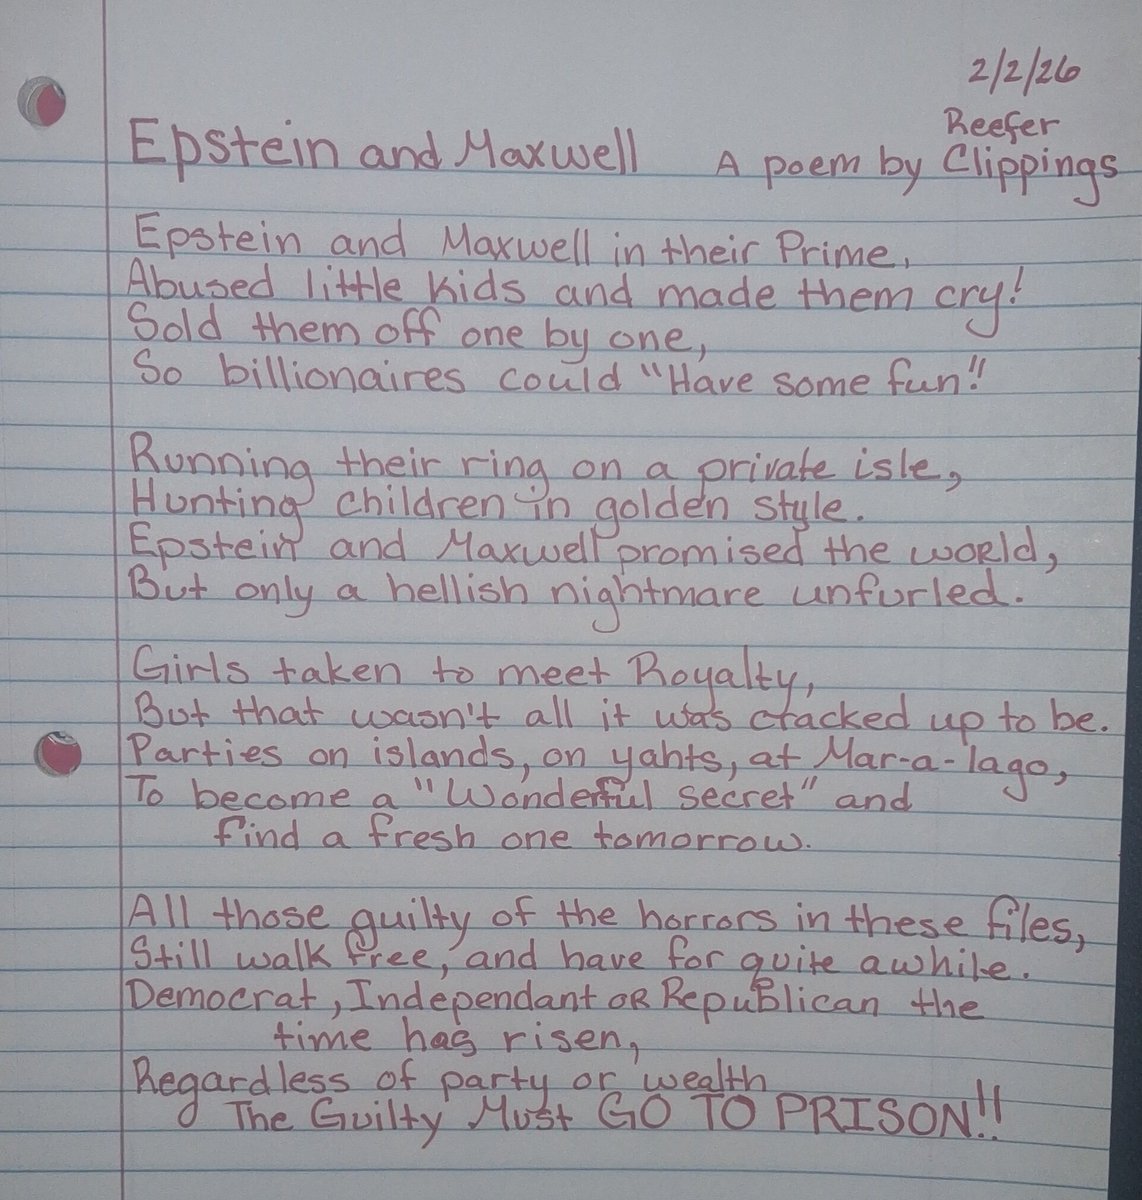 2/2/26
Reefer
Epstein and Maxwell A poem by Clippings
Epstein and Maxwell in their Prime,
Abused little kids and made them cry!
Sold them off one by one,
So billionaires could "Have some fun!!
Running their ring on a private isle,
Hunting children in golden style.
Epstein and Maxwell promised the world,
But only a hellish nightmare unfurled.
Girls taken to meet Royalty,
But that wasn't all it was cracked up to be.
Parties on islands, on yahts, at Mar-a-lago,
To become a "Wonderful secret" and
find a fresh one tomorrow.
All those guilty of the horrors in these files,
Still walk free, and have for quite awhile.
Democrat, Independant OR Republican the
time has risen,
Regardless of party or wealth
The Guilty Must GO TO PRISON!!